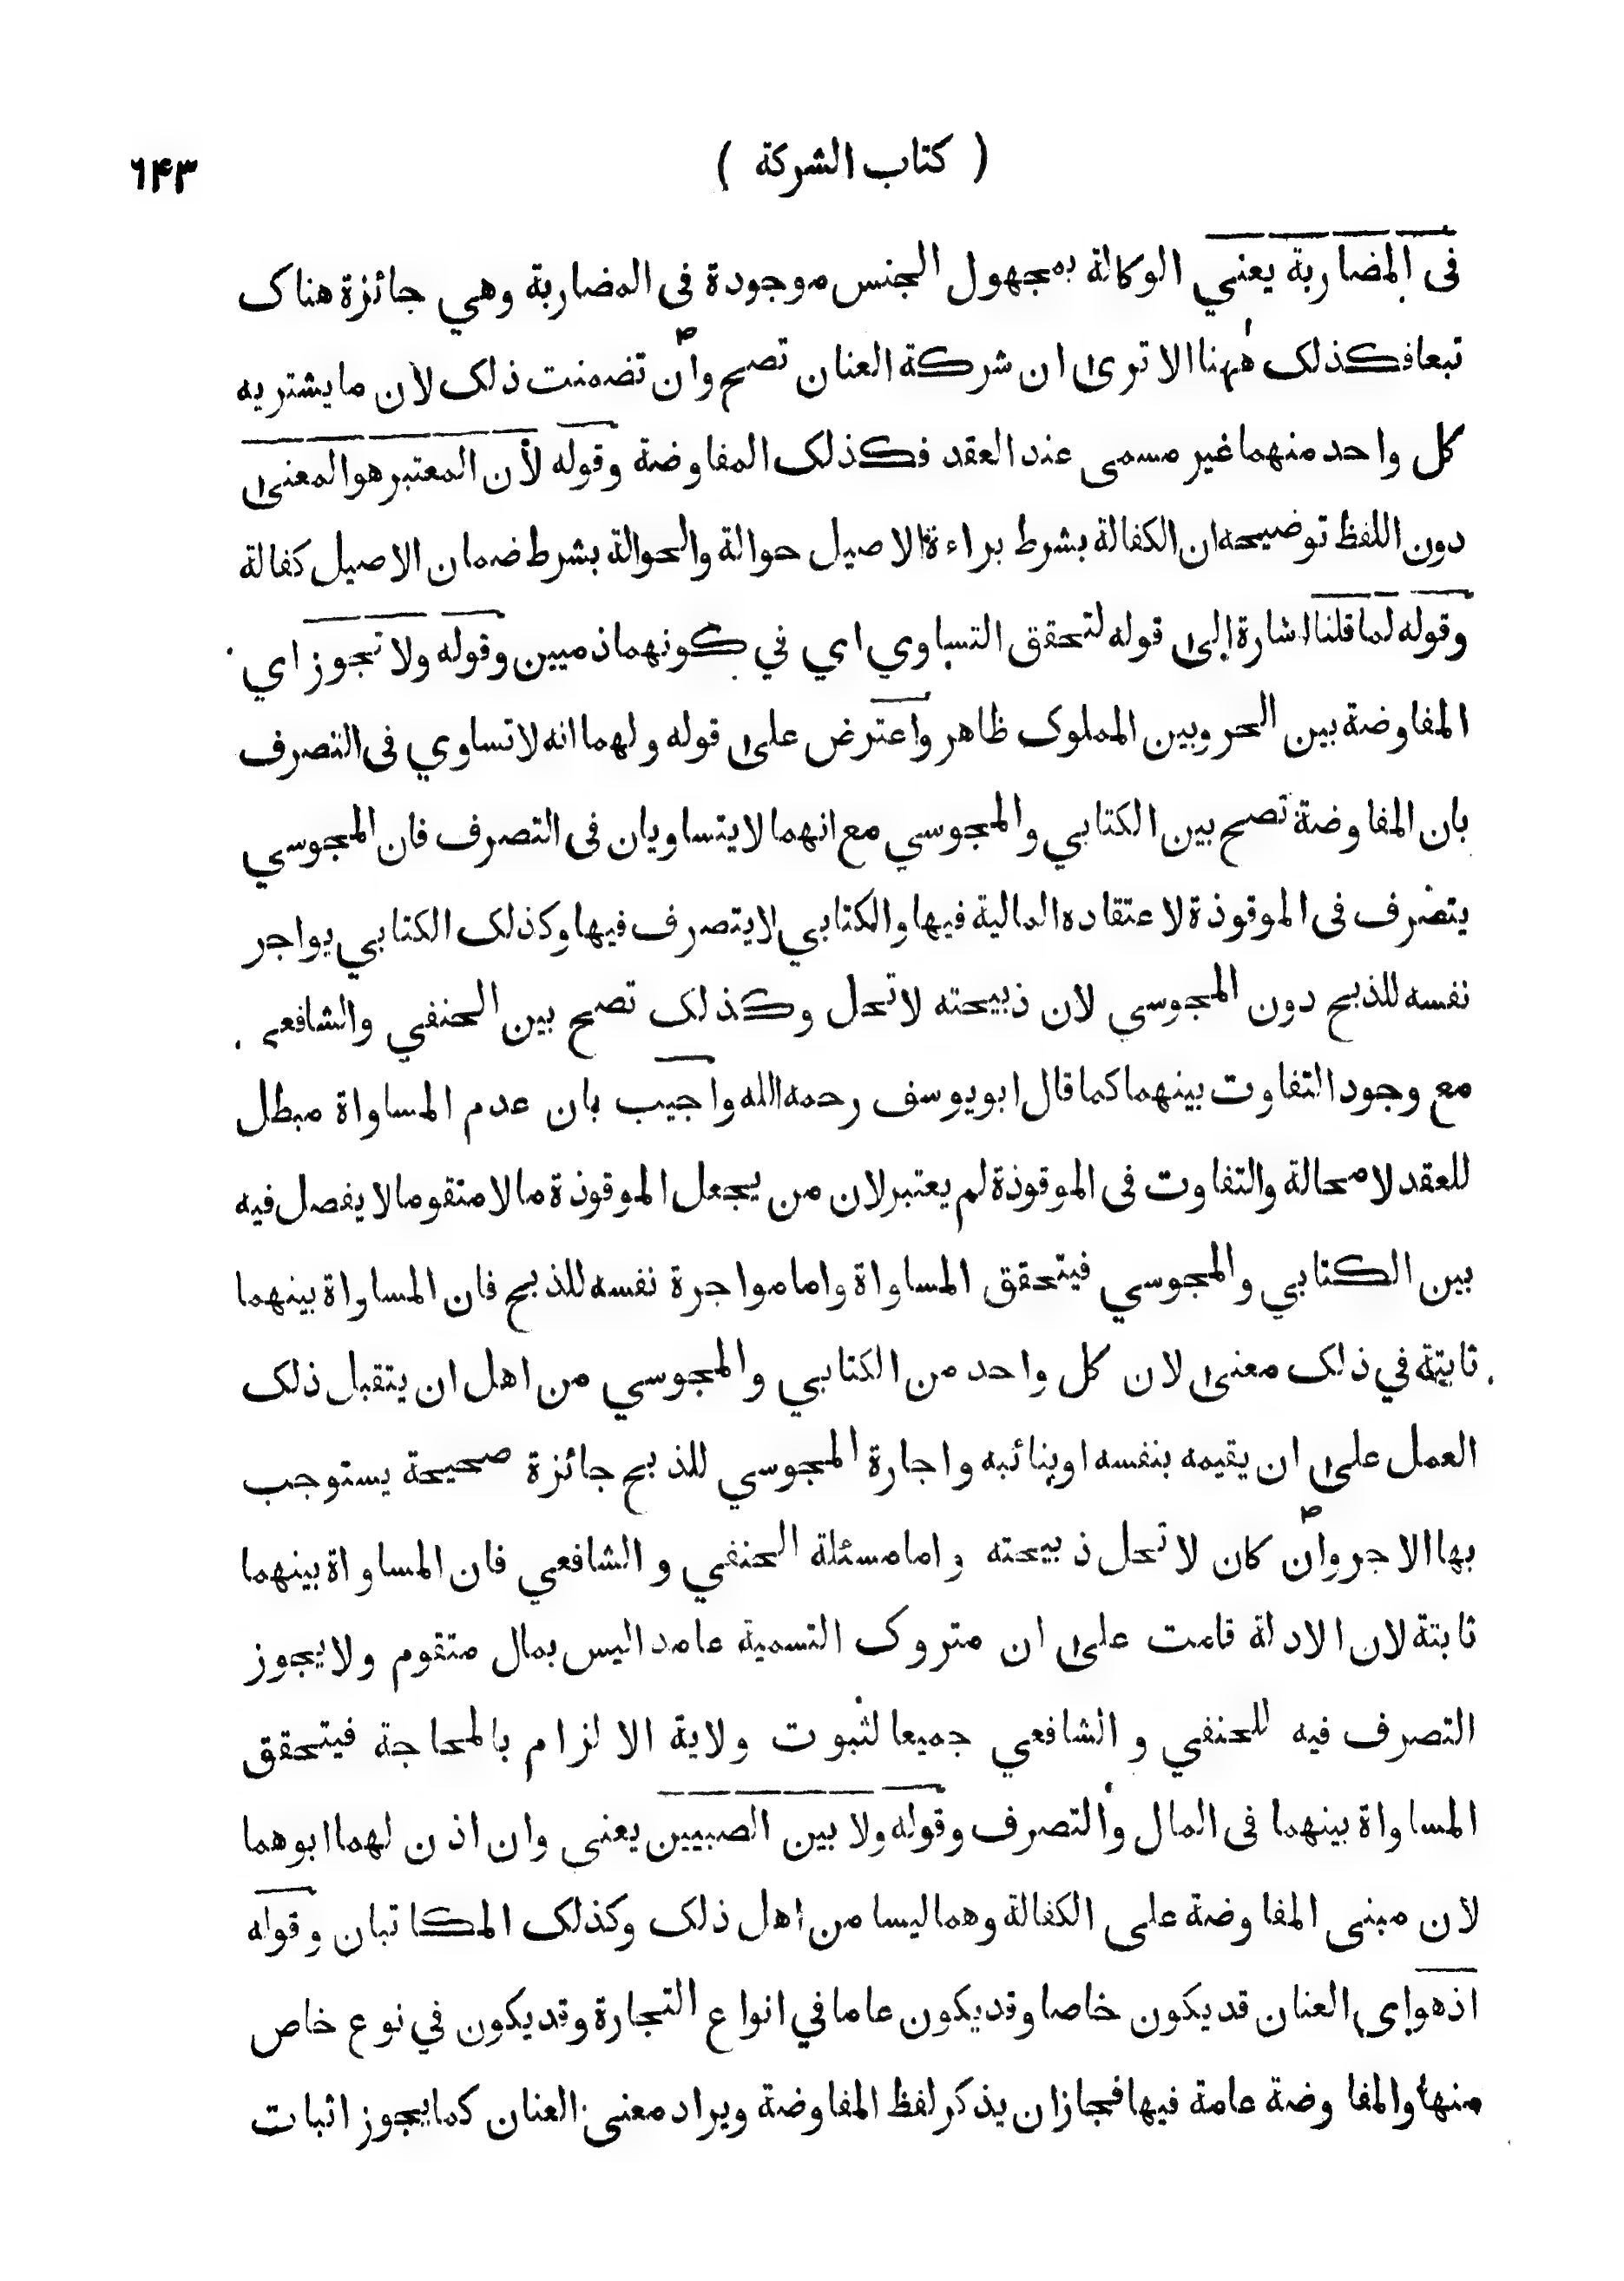 ( كتاب الشركة ) ۶۴۳
فى المضاربة يعني الوكالة بمجهول الجنس موجودة فى المضاربة وهي جائزة هناک
تبعا فكذلک ههنا الا ترى ان شركة العنان تصح وان تضمنت ذلک لان ما يشتريه
كل واحد منهما غير مسمى عند العقد فكذلک المفاوضة وقوله لأن المعتبر هو المعنى
دون اللفظ توضيحه ان الكفالة بشرط براءة الاصيل حوالة والحوالة بشرط ضمان الاصيل كفالة
وقوله لما قلنا اشارة الى قوله لتحقق التساوي اي في كونهما ذميين وقوله ولا تجوز اي
المفاوضة بين الحر وبين المملوک ظاهر واعترض على قوله ولهما انه لا تساوي فى التصرف
بان المفاوضة تصح بين الكتابي والمجوسي مع انهما لا يتساويان فى التصرف فان المجوسي
يتصرف فى الموقوذة لاعتقاده المالية فيها والكتابي لا يتصرف فيها وكذلک الكتابي يواجر
نفسه للذبح دون المجوسي لان ذبيحته لا تحل وكذلک تصح بين الحنفي والشافعي
مع وجود التفاوت بينهما كما قال ابو يوسف رحمه الله واجيب بان عدم المساواة مبطل
للعقد لا محالة والتفاوت فى الموقوذة لم يعتبر لان من يجعل الموقوذة مالا متقوما لا يفصل فيه
بين الكتابي والمجوسي فيتحقق المساواة واما مواجرة نفسه للذبح فان المساواة بينهما
ثابتة في ذلک معنى لان كل واحد من الكتابي والمجوسي من اهل ان يتقبل ذلک
العمل على ان يقيمه بنفسه او بنائبه واجارة المجوسي للذبح جائزة صحيحة يستوجب
بها الاجر وان كان لا تحل ذبيحته واما مسئلة الحنفي والشافعي فان المساواة بينهما
ثابتة لان الادلة قامت على ان متروک التسمية عامدا ليس بمال متقوم ولا يجوز
التصرف فيه للحنفي والشافعي جميعا لثبوت ولاية الالزام بالمحاجة فيتحقق
المساواة بينهما فى المال والتصرف وقوله ولا بين الصبيين يعنى وان اذن لهما ابوهما
لان مبنى المفاوضة على الكفالة وهما ليسا من اهل ذلک وكذلک المكاتبان وقوله
اذ هو اى العنان قد يكون خاصا وقد يكون عاما في انواع التجارة وقد يكون في نوع خاص
منها والمفاوضة عامة فيها فجاز ان يذكر لفظ المفاوضة ويراد معنى العنان كما يجوز اثبات